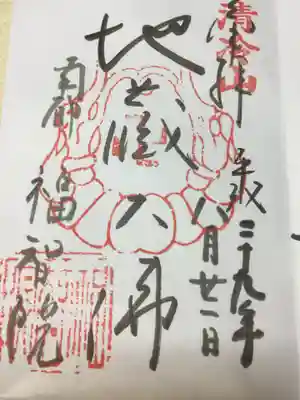 奉拝
平成二十九年
八月廿一日
清凉山
地蔵大佛
南都
福智院